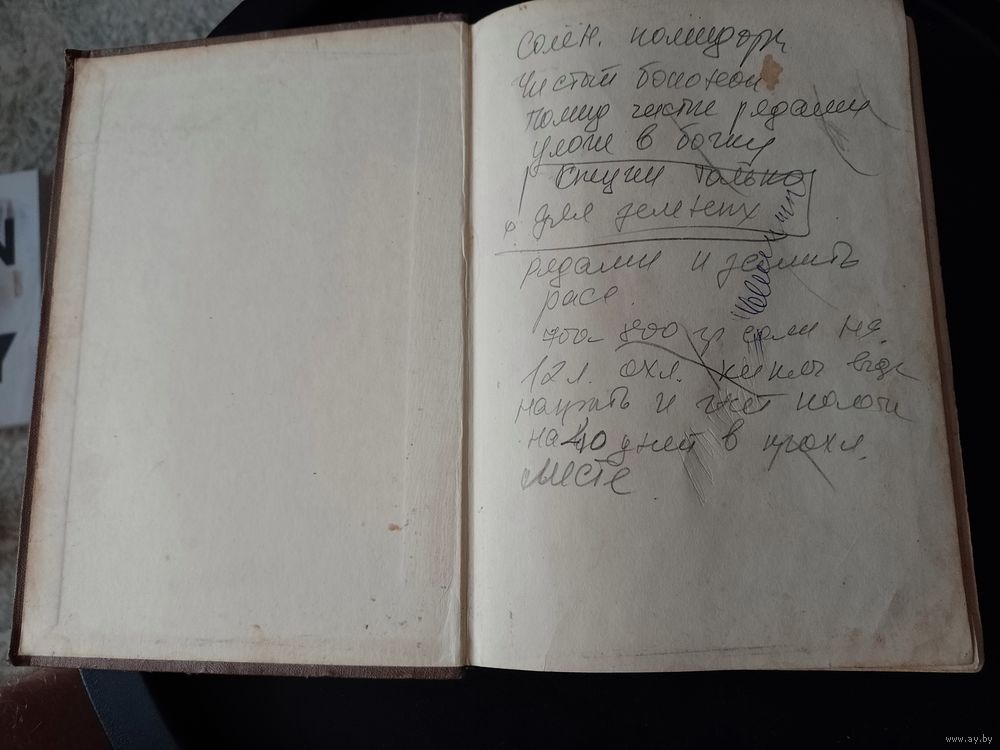 солён. помидоры
Чистый бочонок
помид чистые рядами
уложи в бочку
специи только
для зеленых
рядами и залить
расс.
700 800 гр соли на
12 л. охл. кипяч воды
накрыть и гнёт положи
на 40 дней в прохл.
месте.
www.ay.by